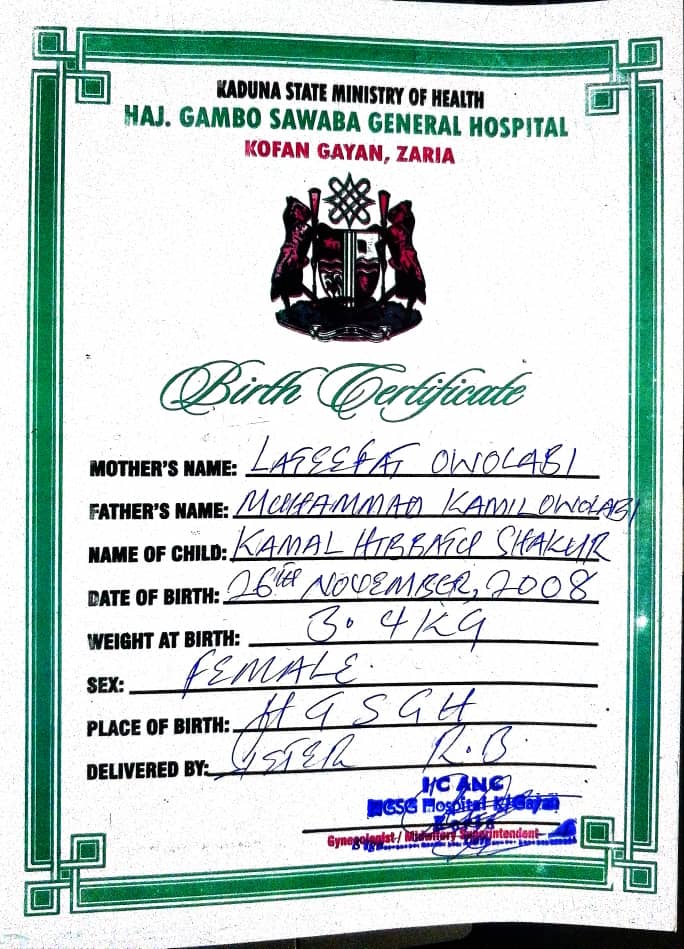 KADUNA STATE MINISTRY OF HEALTH
HAJ. GAMBO SAWABA GENERAL HOSPITAL
KOFAN GAYAN, ZARIA
Birth Certificate
MOTHER'S NAME: LATEEFAT OWOLABI
FATHER'S NAME: MUHAMMAD KAMIL OWOLABI
NAME OF CHILD: KAMAL SHAKUR
DATE OF BIRTH: 26TH NOVEMBER, 2008
WEIGHT AT BIRTH: 3.4KG
SEX: FEMALE.
PLACE OF BIRTH: HGSGH
DELIVERED BY: SISTER R.B.
I/C ANC
HGSG Hospital K/Gayan
Gynecologist / Midwifery Superintendent